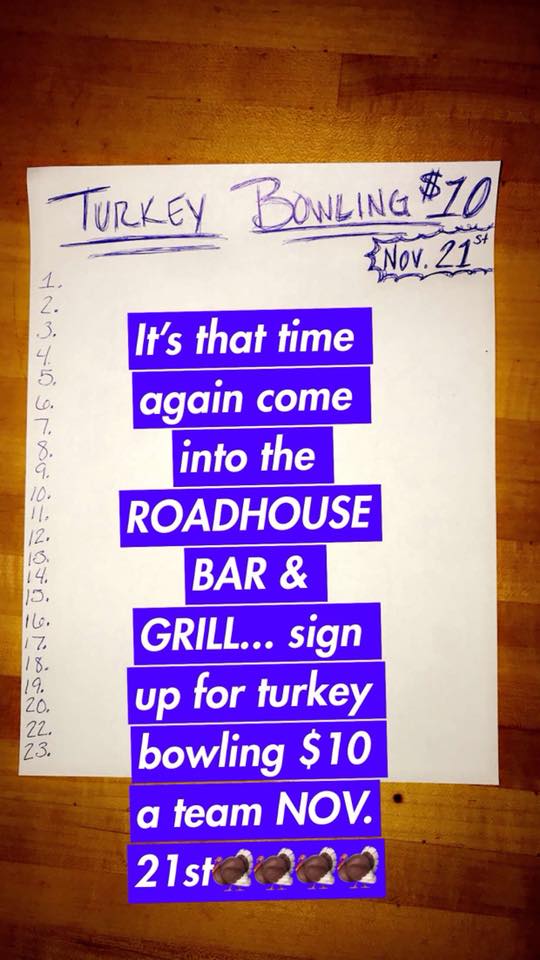 TURKEY BOWLING $10
NOV. 21st
1.
2.
3.
4.
5.
6.
7.
8.
9.
10.
11.
12.
13.
14.
15.
16.
17.
18.
19.
20.
22.
23.
It's that time
again come
into the
ROADHOUSE
BAR &
GRILL... sign
up for turkey
bowling $10
a team NOV.
21st🦃🦃🦃🦃